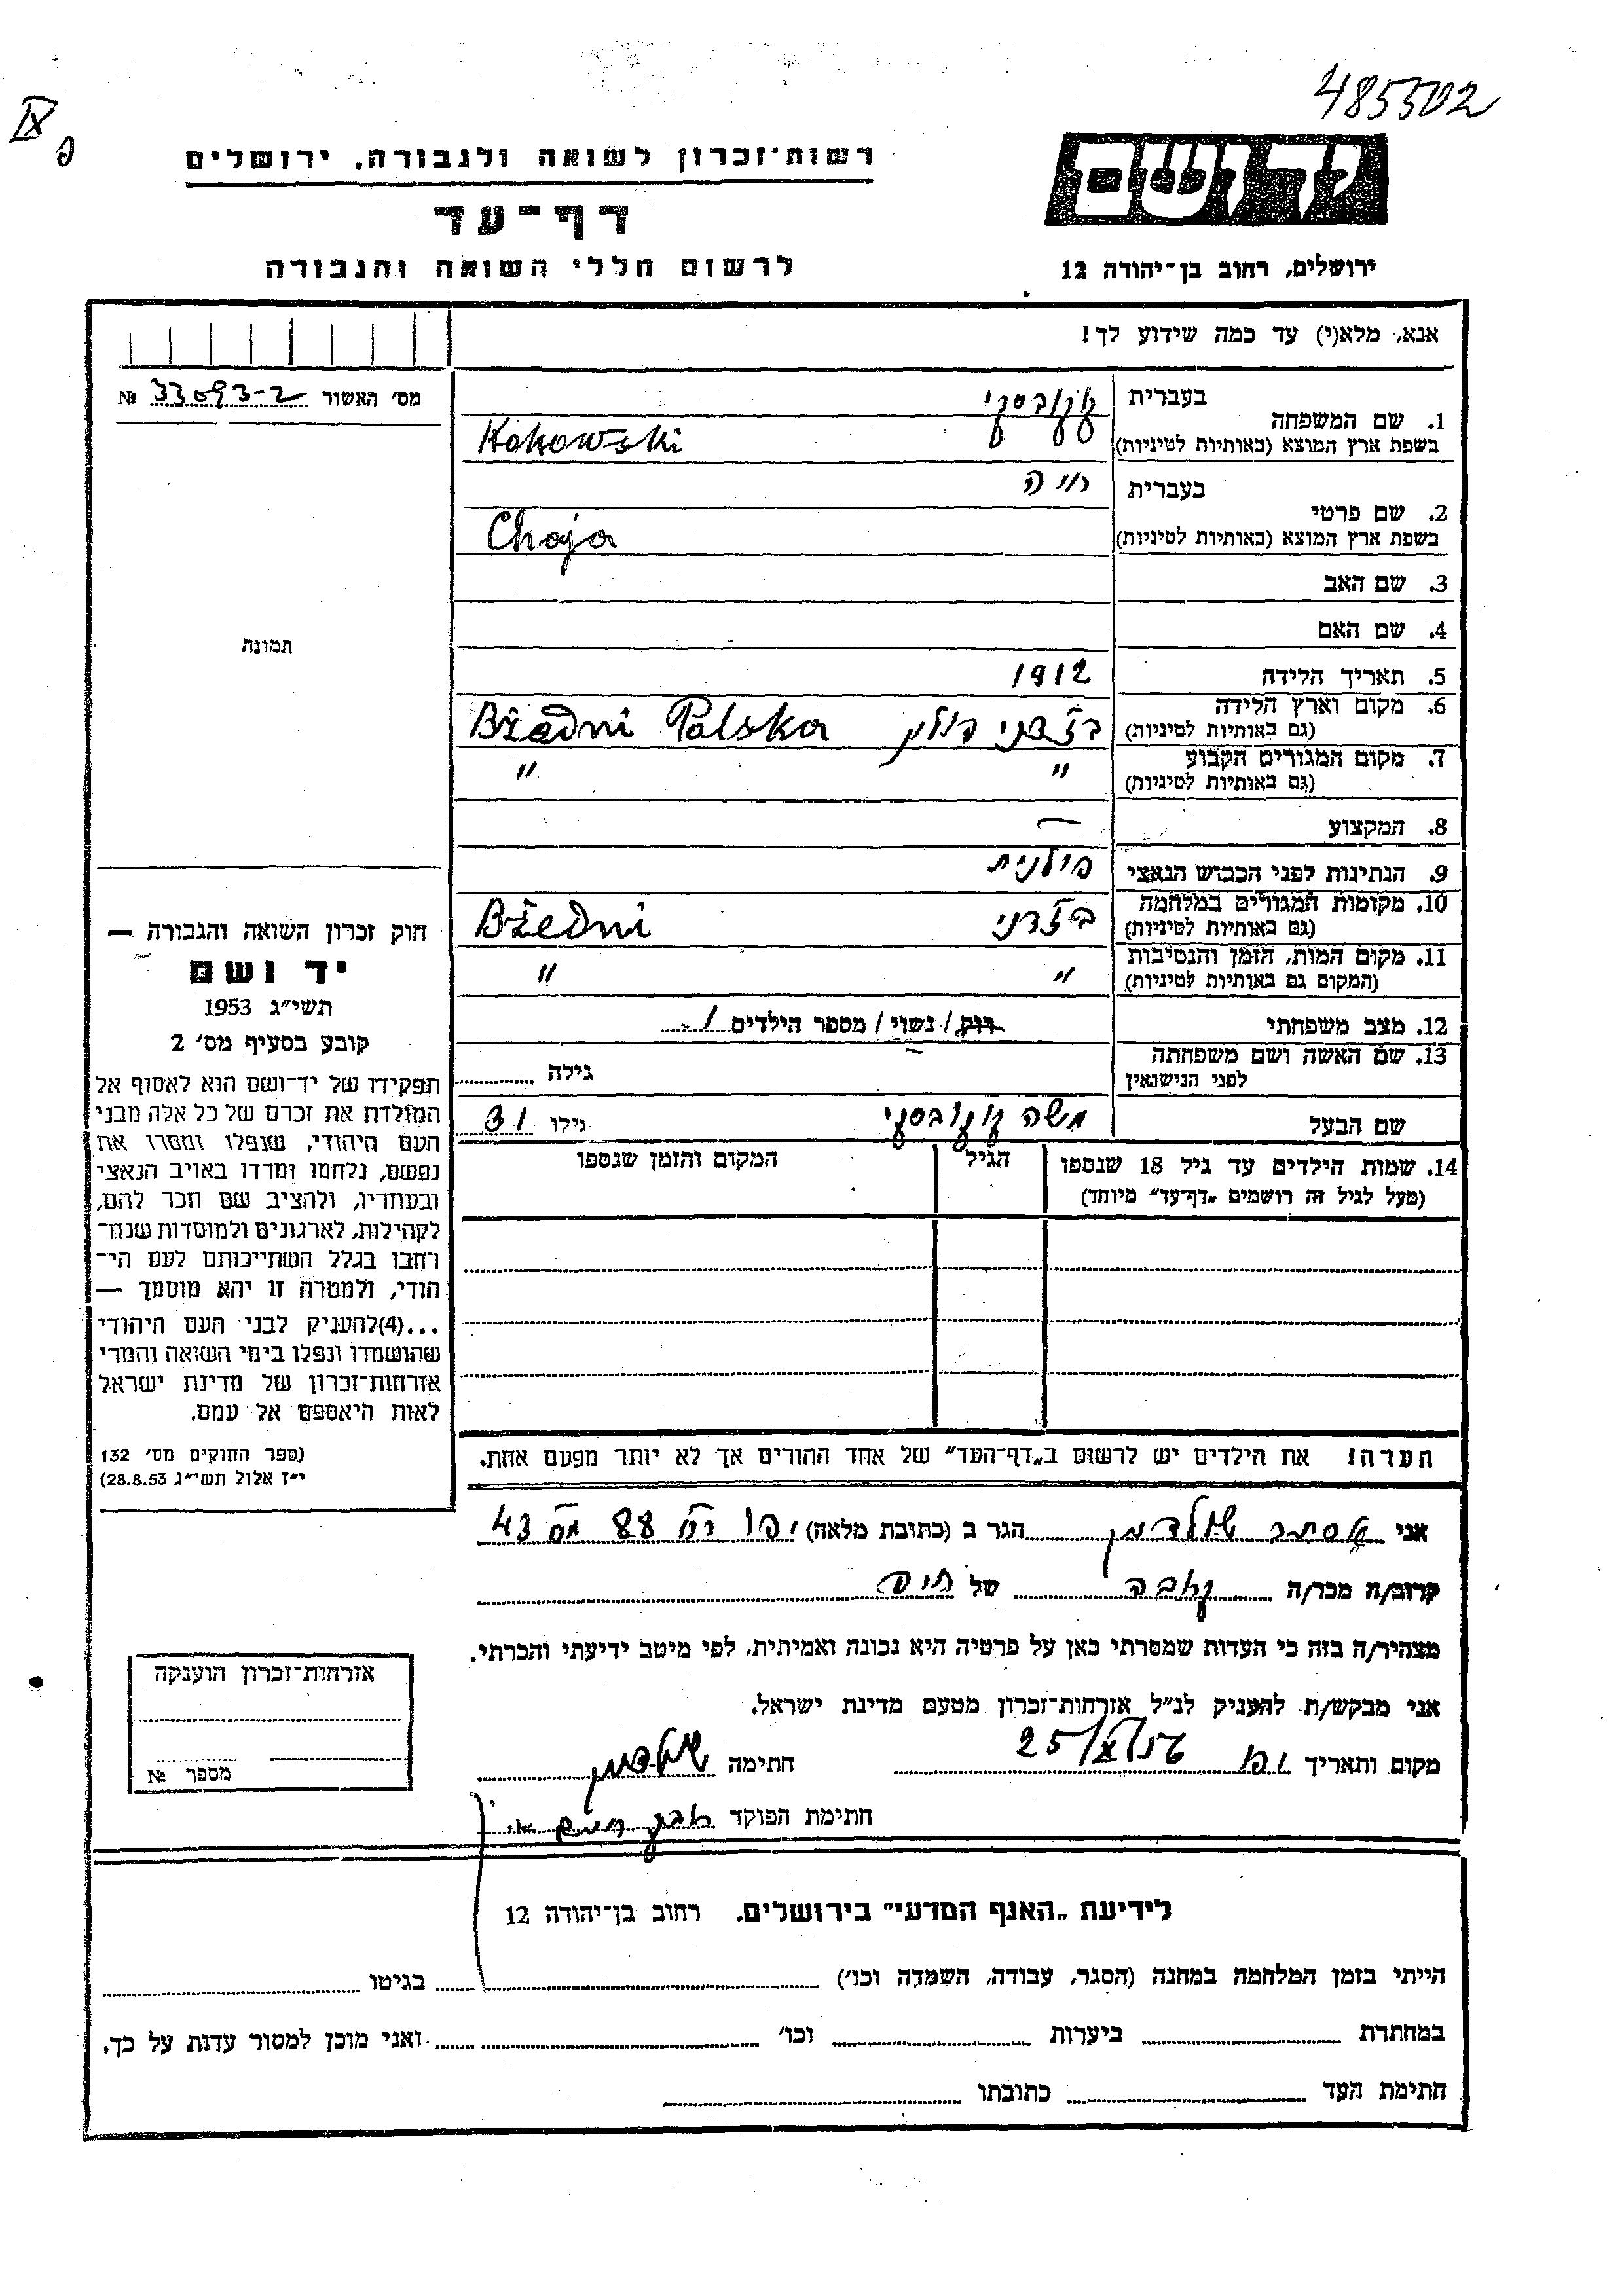 485502
IX
פ
יד ושם
רשות־זכרון לשואה ולגבורה, ירושלים
דף־עד
לרשום חללי השואה והגבורה
ירושלים, רחוב בן־יהודה 12
אנא, מלא(י) עד כמה שידוע לך!
מס׳ האשור 33093-2 №
1. שם המשפחה
בעברית קקובסקי
בשפת ארץ המוצא (באותיות לטיניות) Kokowski
2. שם פרטי
בעברית חיה
בשפת ארץ המוצא (באותיות לטיניות) Choja
3. שם האב
4. שם האם
5. תאריך הלידה 1912
6. מקום וארץ הלידה
(גם באותיות לטיניות) פולין Bżedni Polska
7. מקום המגורים הקבוע
(גם באותיות לטיניות) " "
8. המקצוע —
9. הנתינות לפני הכבוש הנאצי פולנית
10. מקומות המגורים במלחמה
(גם באותיות לטיניות) בז׳דני Bżedni
11. מקום המות, הזמן והנסיבות
(המקום גם באותיות לטיניות) " "
12. מצב משפחתי רוק/נשוי/מספר הילדים 1
13. שם האשה ושם משפחתה
לפני הנישואין — גילה
שם הבעל משה קקובסקי גילו 31
14. שמות הילדים עד גיל 18 שנספו
(מעל לגיל זה רושמים „דף־עד” מיוחד)
הגיל
המקום והזמן שנספו
הערה! את הילדים יש לרשום ב„דף־העד” של אחד ההורים אך לא יותר מפעם אחת.
תמונה
חוק זכרון השואה והגבורה —
יד ושם
תשי״ג 1953
קובע בסעיף מס׳ 2
תפקידו של יד־ושם הוא לאסוף אל
המולדת את זכרם של כל אלה מבני
העם היהודי, שנפלו ומסרו את
נפשם, נלחמו ומרדו באויב הנאצי
ובעוזריו, ולהציב שם וזכר להם,
לקהילות, לארגונים ולמוסדות שנח־
רחבו בגלל השתייכותם לעם הי־
הודי, ולמטרה זו יהא מוסמך —
...(4)להעניק לבני העם היהודי
שהושמדו ונפלו בימי השואה והמרי
אזרחות־זכרון של מדינת ישראל
לאות היאספם אל עמם.
(ספר החוקים מס׳ 132
י״ז אלול תשי״ג 28.8.53)
אני אסתר שולדמן הגר ב (כתובת מלאה) יפו רח׳ 88 מס 43
קרוב/ה מכר/ה קרובה של חיה
מצהיר/ה בזה כי העדות שמסרתי כאן על פרטיה היא נכונה ואמיתית, לפי מיטב ידיעתי והכרתי.
אני מבקש/ת להעניק לנ״ל אזרחות־זכרון מטעם מדינת ישראל.
מקום ותאריך יפו 25/X/ חתימה שולדמן
חתימת הפוקד
אזרחות־זכרון הוענקה
מספר №
לידיעת „האגף המדעי” בירושלים. רחוב בן־יהודה 12
הייתי בזמן המלחמה במחנה (הסגר, עבודה, השמדה וכו׳) בגיטו
במחתרת ביערות וכו׳ ואני מוכן למסור עדות על כך.
חתימת העד כתובתו